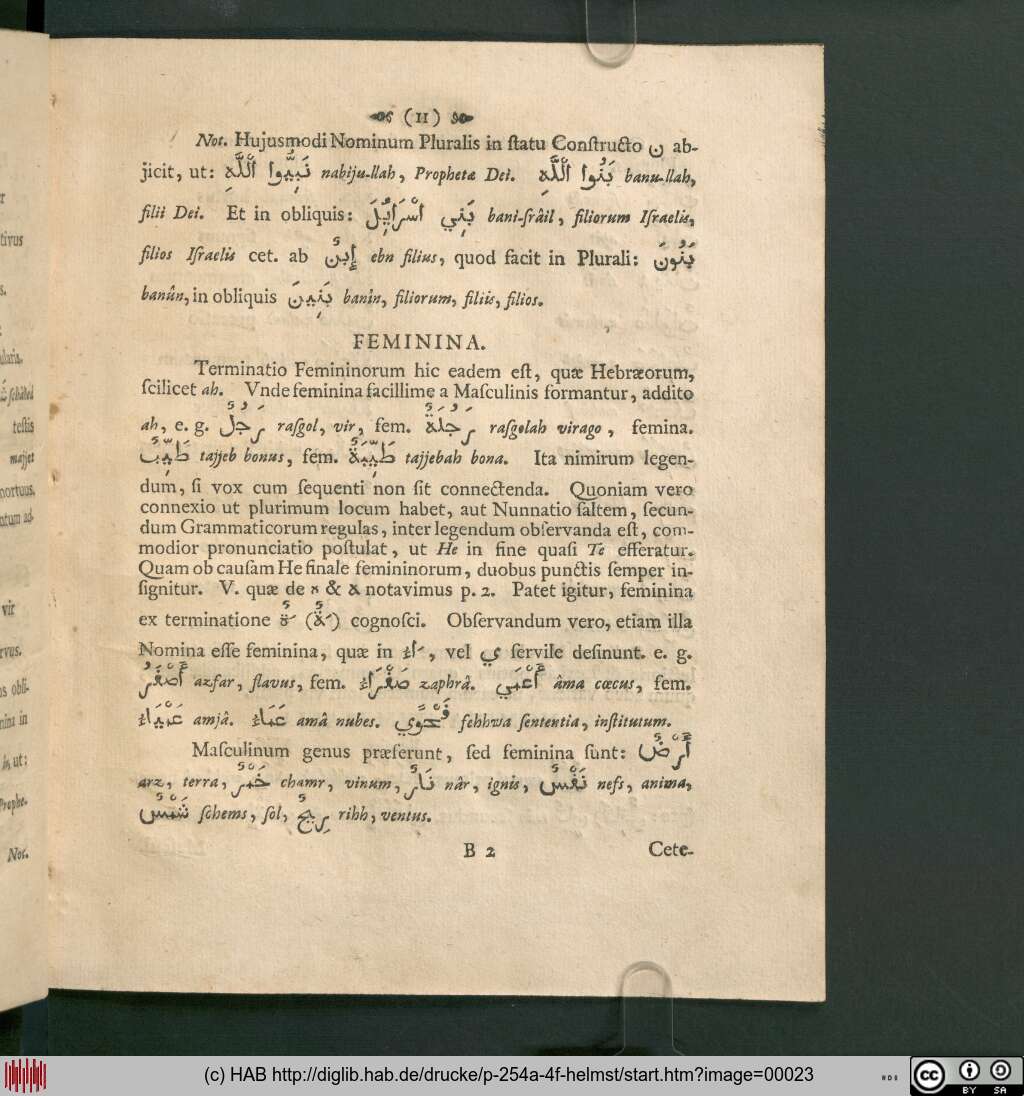 (11)
Not. Hujusmodi Nominum Pluralis in ſtatu Conſtructo ن ab-
jicit, ut: نَبِيُّوا اْللَّهِ nabiju-llah, Prophetæ Dei. بَنُوا اْللَّهِ banu-llah,
filii Dei. Et in obliquis: بَنِي اسْرَايُلَ bani-ſrâil, filiorum Iſraelis,
filios Iſraelis cet. ab إِبنٌ ebn filius, quod facit in Plurali: بَنُونَ
banûn, in obliquis بَنِينَ banin, filiorum, filiis, filios.
FEMININA.
Terminatio Femininorum hic eadem eſt, quæ Hebræorum,
ſcilicet ah. Vnde feminina facillime a Maſculinis formantur, addito
ah, e. g. رَجُلٌ raſgol, vir, fem. رَجُلَةٌ raſgolah virago, femina.
طَيِّبٌ tajjeb bonus, fem. طَيِّبَةٌ tajjebah bona. Ita nimirum legen-
dum, ſi vox cum ſequenti non ſit connectenda. Quoniam vero
connexio ut plurimum locum habet, aut Nunnatio ſaltem, ſecun-
dum Grammaticorum regulas, inter legendum obſervanda eſt, com-
modior pronunciatio poſtulat, ut He in fine quaſi Te efferatur.
Quam ob cauſam He finale femininorum, duobus punctis ſemper in-
ſignitur. V. quæ de & notavimus p. 2. Patet igitur, feminina
ex terminatione ةٌ (ةٌ) cognoſci. Obſervandum vero, etiam illa
Nomina eſſe feminina, quæ in اء, vel ي ſervile deſinunt. e. g.
أَصْفَرُ azfar, flavus, fem. صَفْرَاء zaphrâ. أَعْمَي âma cœcus, fem.
عَمْيَاء amjâ. عَمَاء amâ nubes. فَحْوَي fehhwa ſententia, inſtitutum.
Maſculinum genus præferunt, ſed feminina ſunt: أَرْضٌ
arz, terra, خَمْرٌ chamr, vinum, نَارٌ nâr, ignis, نَفْسٌ nefs, anima,
شَمْسٌ ſchems, ſol, رِيحٌ rihh, ventus.
B 2 Cete-
tivus
teſtis
majjet
mortuus.
vir
in, ut:
Prophe-
Not.
(c) HAB http://diglib.hab.de/drucke/p-254a-4f-helmst/start.htm?image=00023
HAB
cc BY SA